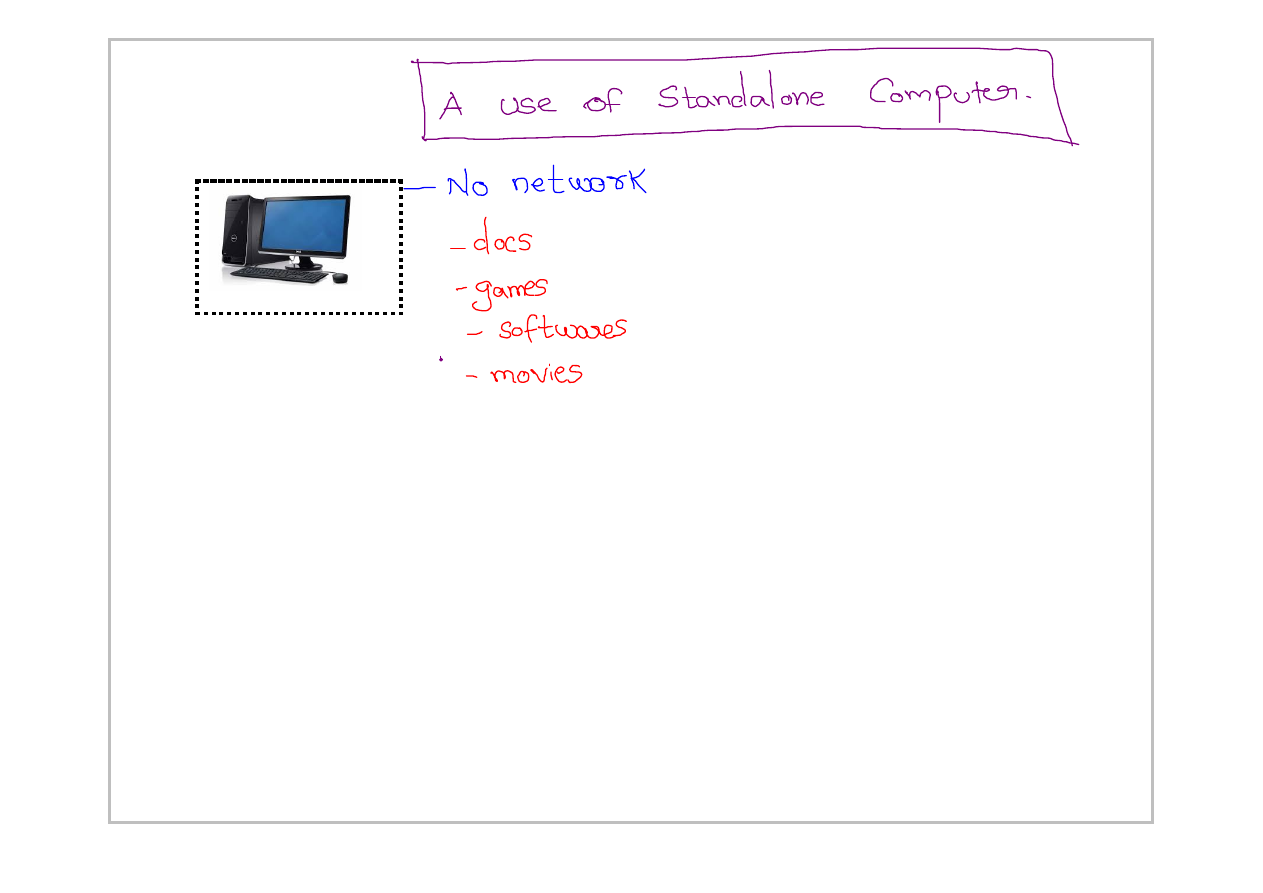 A use of Standalone Computer.
No network
- docs
- games
- softwares
- movies